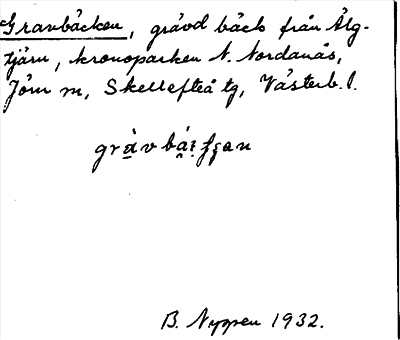 Gravbäcken, grävd bäck från Älg-
tjärn, kronoparken N. Nordanås,
Jörn sn, Skellefteå tg, Västerb. l.
gràvbá
B. Nyman 1932.